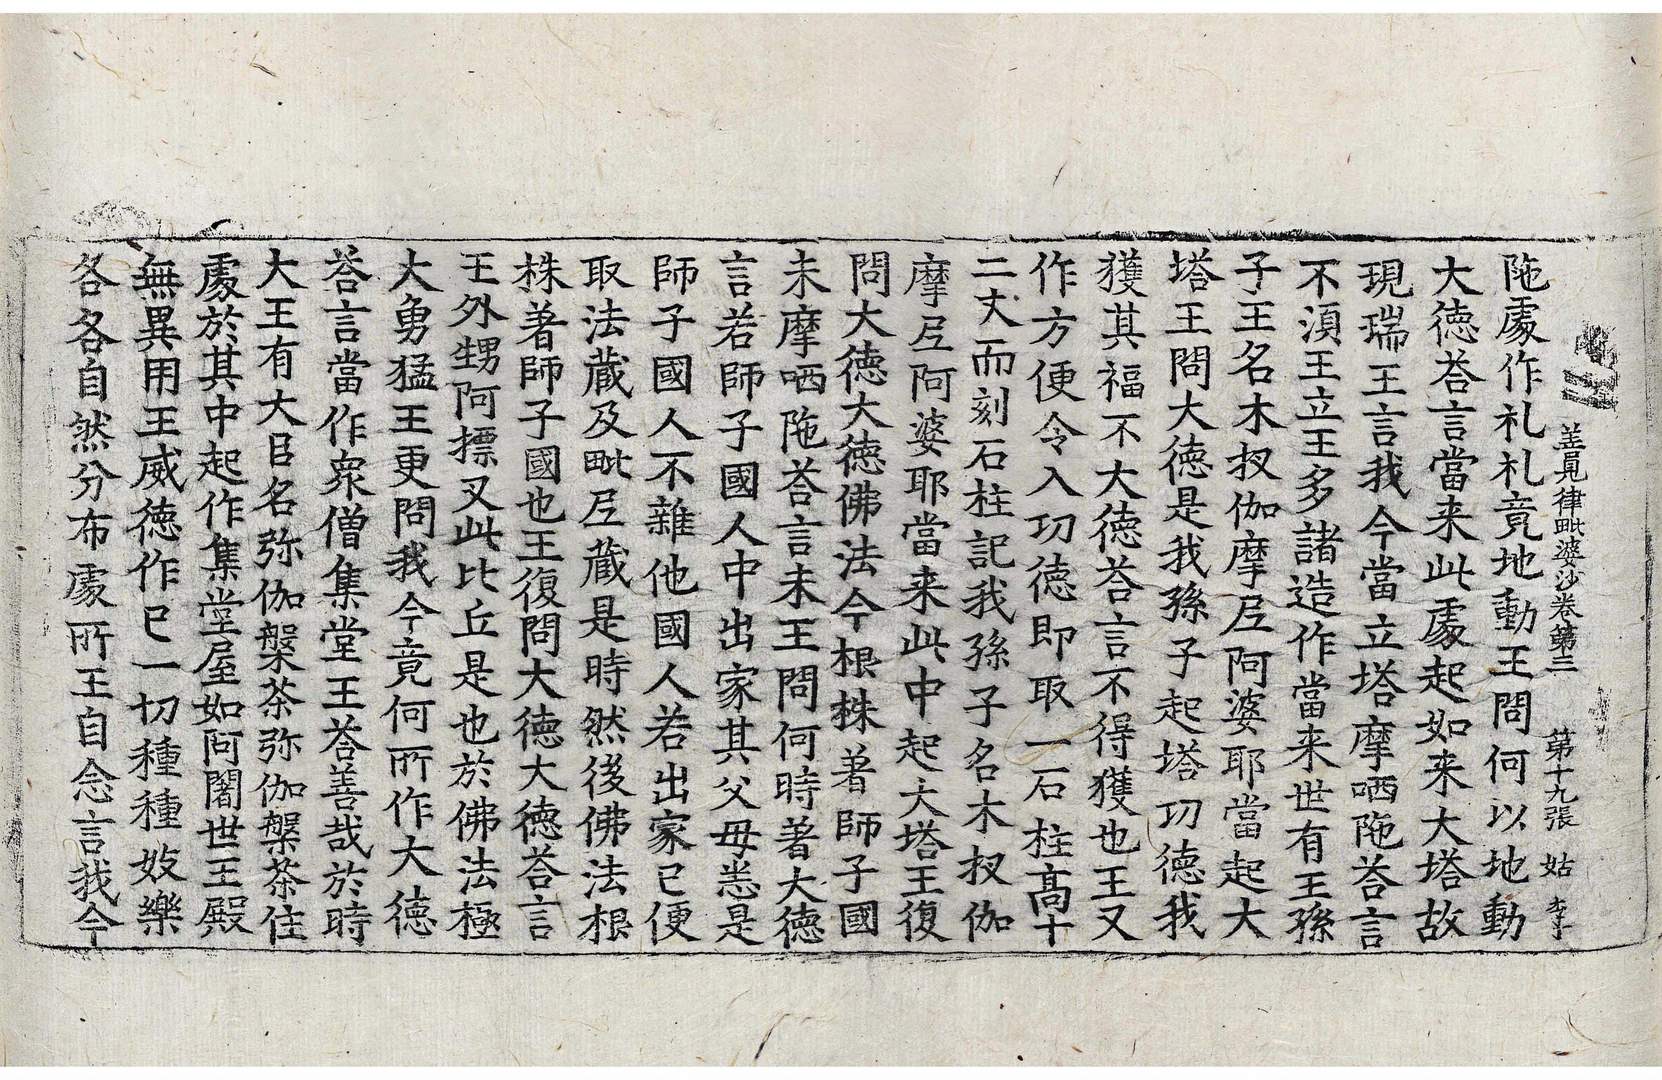 善見律毗婆沙卷第三 第十九張 姑
陁處作礼礼竟地動王問何以地動
大德荅言當来此處起如来大塔故
現瑞王言我今當立塔摩哂陁荅言
不湏王立王多諸造作當来世有王孫
子王名木扠伽摩𡰱阿婆耶當起大
塔王問大德是我孫子起塔功德我
獲其福不大德荅言不得獲也王又
作方便令入功德即取一石柱髙十
二丈而刻石柱記我孫子名木扠伽
摩𡰱阿婆耶當来此中起大塔王復
問大德大德佛法今根株著師子國
未摩哂陁荅言未王問何時著大德
言若師子國人中出家其父母悉是
師子國人不雜他國人若出家已便
取法藏及毗𡰱藏是時然後佛法根
株著師子國也王復問大德大德荅言
王外甥阿摽叉此比丘是也於佛法極
大勇猛王更問我今竟何所作大德
荅言當作衆僧集堂王荅善哉於時
大王有大臣名弥伽槃茶弥伽槃茶住
處於其中起作集堂屋如阿闍世王殿
無異用王威德作已一切種種妓樂
各各自然分布處所王自念言我今